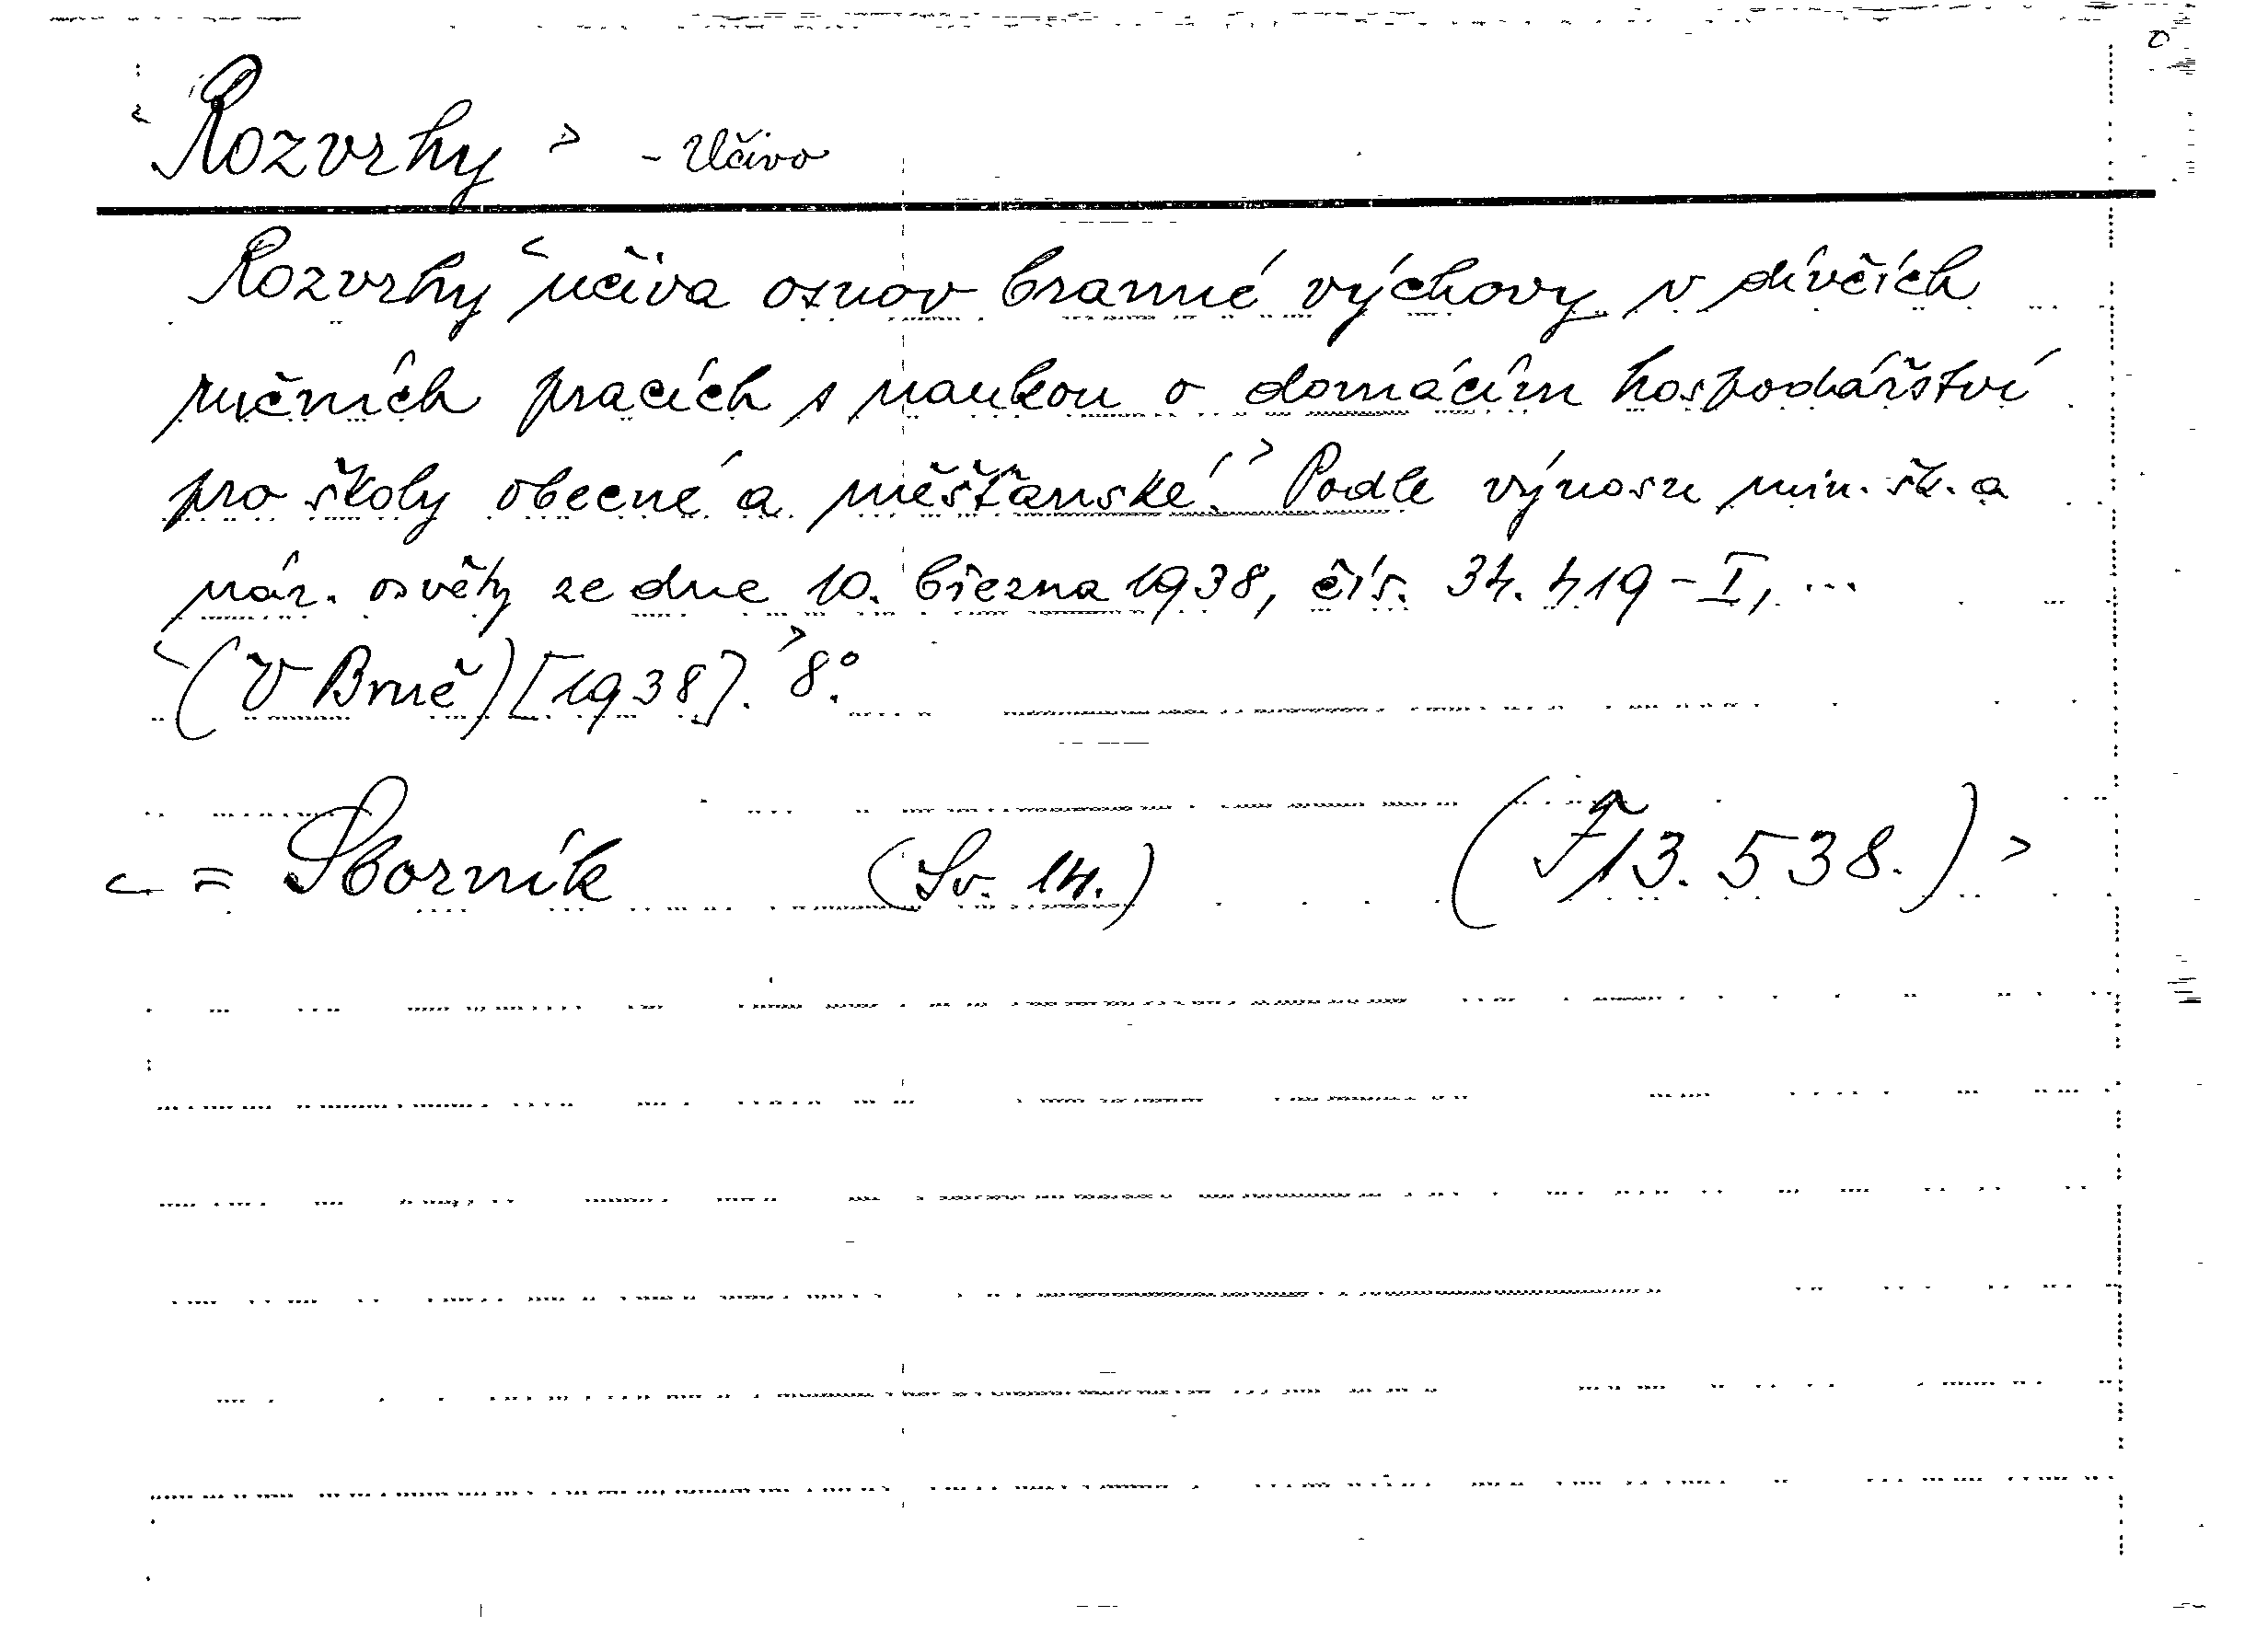 Rozvrhy - Učivo
Rozvrhy učiva osnov branné výchovy v dívčích
ručních pracích s naukou o domácím hospodářství
pro školy obecné a měšťanské. Podle výnosu min. šk. a
nár. osvěty ze dne 10. března 1938, čís. 34.419-I, ...
(V Brně) [1938]. 8°.
= Sborník (Sv. 14.) (F13.538.)